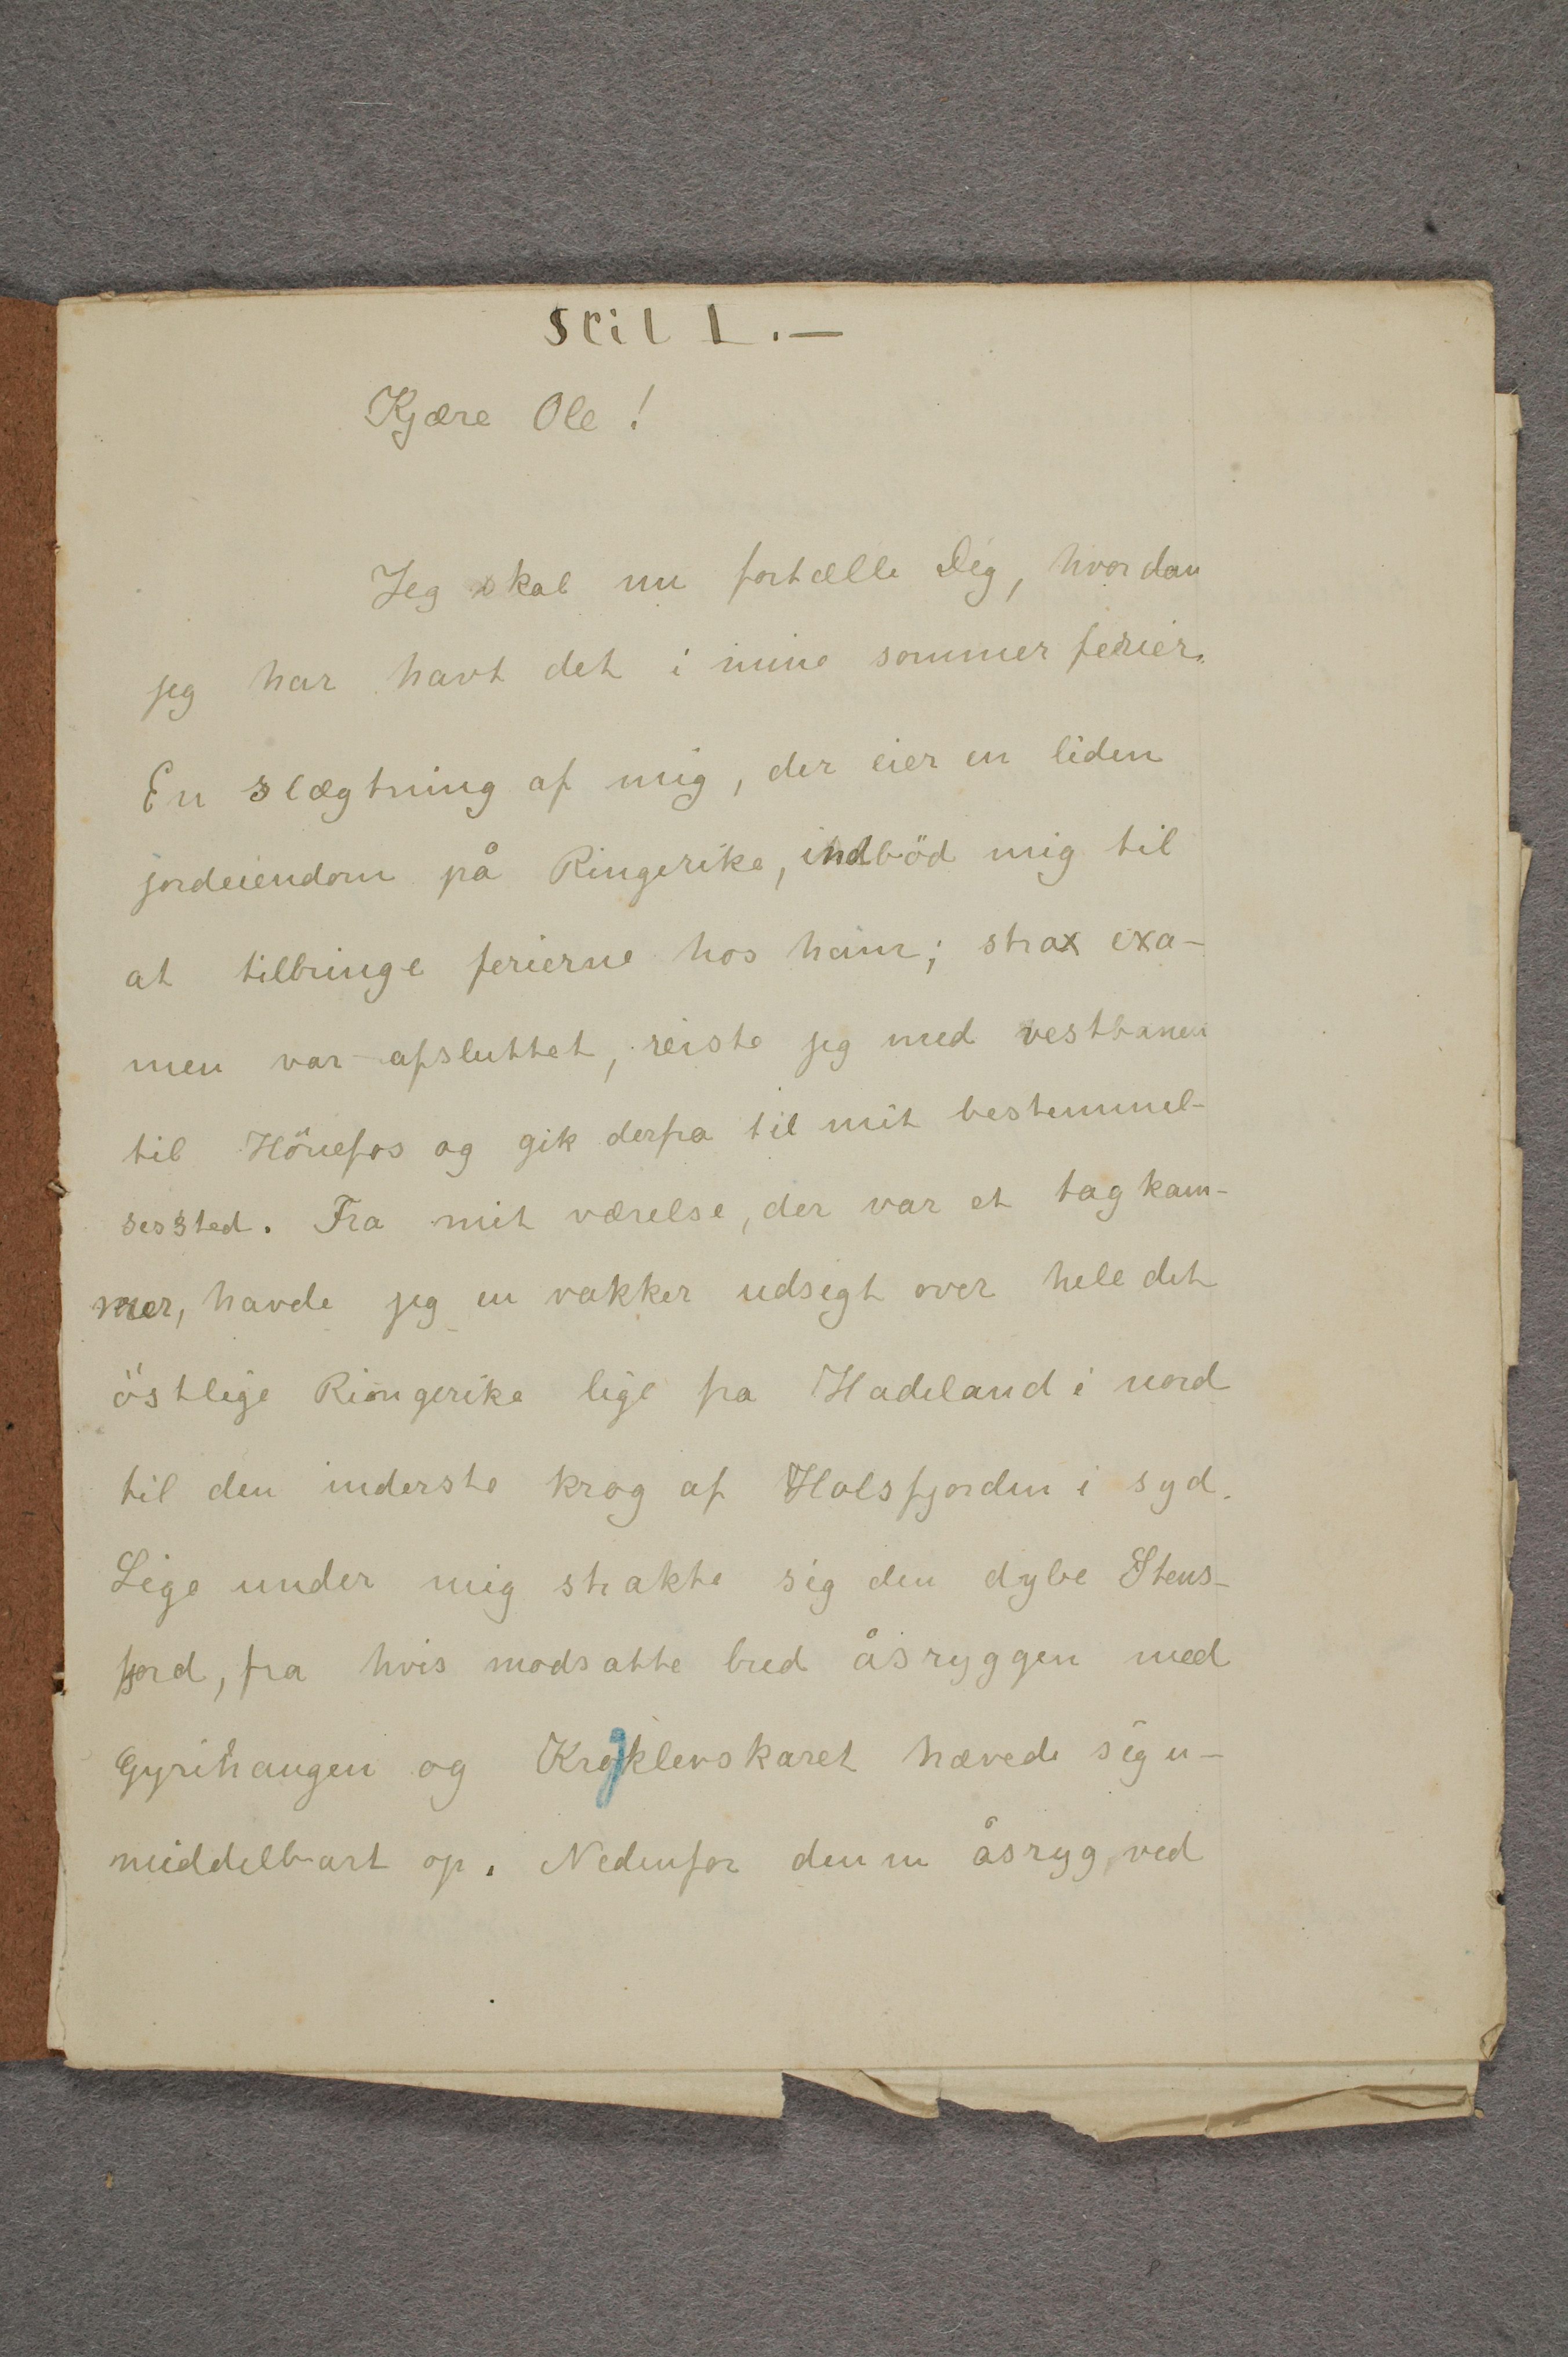 Stil I.—
Kjære Ole!
Jeg skal nu fortælle Dig, hvordan
jeg har havt det i mine sommerferier.
En slægtning af mig, der eier en liden
jordeiendom på Ringerike, indböd mig til
at tilbringe ferierne hos ham; strax exa-
men var afsluttet, reiste jeg med vestbanen
til Hönefos og gik derfra til mit bestemmel-
sessted. Fra mit værelse, der var et tagkam-
mer, havde jeg en vakker udsigt over hele det
östlige Ringerike lige fra Hadeland i nord
til den inderste krog af Holsfjorden i syd.
Lige under mig strakte sig den dybe Stens-
fjord, fra hvis modsatte bred åsryggen med
Gyrihaugen og Krogklevskaret hævede sig u-
middelbart op. Nedenfor denne åsryg, ved